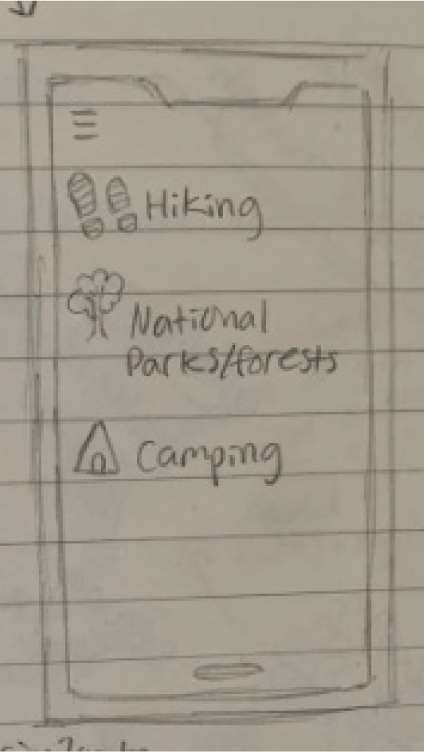 Hiking
National
Parks/forests
Camping